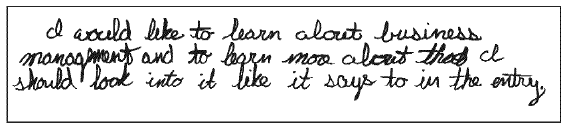 I would like to learn about business
management and to learn more about that I
should look into it like it says to in the entry.